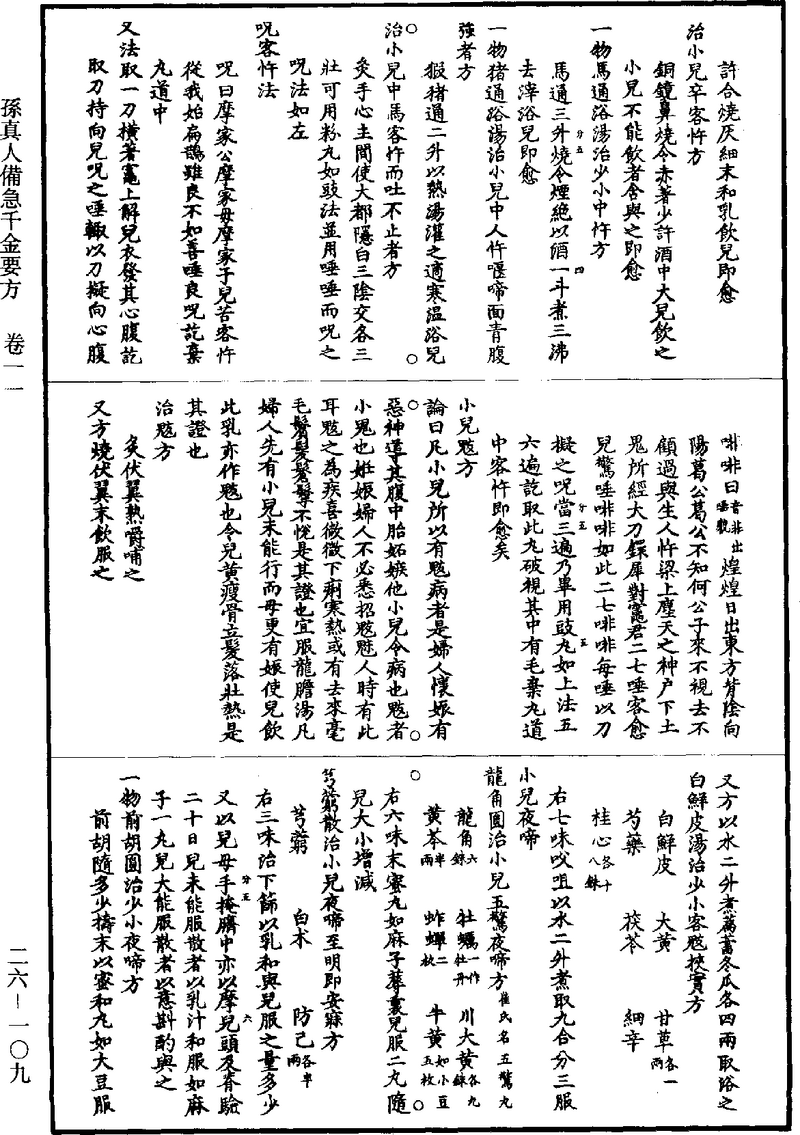 許合燒灰細末和乳飲兒即愈
治小兒卒客忤方
銅鏡鼻燒令赤著少許酒中大兒飲之
小兒不能飲者含與之即愈
一物馬通浴湯治少小中忤方
馬通三升燒令煙絕以酒一斗煮三沸
去滓浴兒即愈
一物猪通浴湯治小兒中人忤嘊啼面青腹
強者方
猳猪通二升以熱湯灌之適寒温浴兒
治小兒中馬客忤而吐不止者方
灸手心主間使大都隱白三陰交各三
壯可用粉丸如豉法並用唾唾而呪之
呪法如左
呪客忤法
呪曰摩家公摩家母摩家子兒苦客忤
從我始扁鵲雖良不如善唾良呪訖棄
丸道中
又法取一刀橫著竈上解兒衣發其心腹訖
取刀持向兒呪之唾輒以刀擬向心腹
啡啡曰音非出唾貌煌煌日出東方背陰向
陽葛公葛公不知何公子來不視去不
顧過與生人忤梁上塵天之神户下土
鬼所經大刀鐶犀對竈君二七唾客愈
兒驚唾啡啡如此二七啡啡每唾以刀
擬之呪當三遍乃畢用豉丸如上法五
六遍訖取此丸破視其中有毛棄丸道
中客忤即愈矣
小兒鬾方
論曰凡小兒所以有鬾病者是婦人懷娠有
惡神導其腹中胎妬嫉他小兒令病也鬾者
小鬼也妊娠婦人不必悉招鬾魅人時有此
耳鬾之為疾喜微微下痢寒熱或有去來毫
毛鬢髮鬇鬡不悅是其證也宜服龍膽湯凡
婦人先有小兒未能行而母更有娠使兒飲
此乳亦作鬾也令兒黃瘦骨立髮落壯熱是
其證也
治鬾方
炙伏翼熟嚼哺之
又方燒伏翼末飲服之
又方以水二升煮萹蓄冬瓜各四兩取浴之
白鮮皮湯治少小客鬾挾實方
白鮮皮 大黃 甘草各一兩
芍藥 茯苓 細辛
桂心各十八銖
右七味㕮咀以水二升煮取九合分三服
小兒夜啼
龍角圓治小兒五驚夜啼方崔氏名五驚丸
龍角六銖 牡蠣一作牡丹 川大黃各九銖
黃芩半兩 蚱蟬二枚 牛黃如小豆五枚
右六味末蜜丸如麻子蓐裏兒服二丸隨
兒大小增減
芎藭散治小兒夜啼至明即安寐方
芎藭 白术 防己各半兩
右三味治下篩以乳和與兒服之量多少
又以兒母手掩臍中亦以摩兒頭及脊驗
二十日兒未能服散者以乳汁和服如麻
子一丸兒大能服散者以意斟酌與之
一物前胡圓治少小夜啼方
前胡隨多少擣末以蜜和丸如大豆服
孫真人備急千金要方 卷一一
二六—一〇九